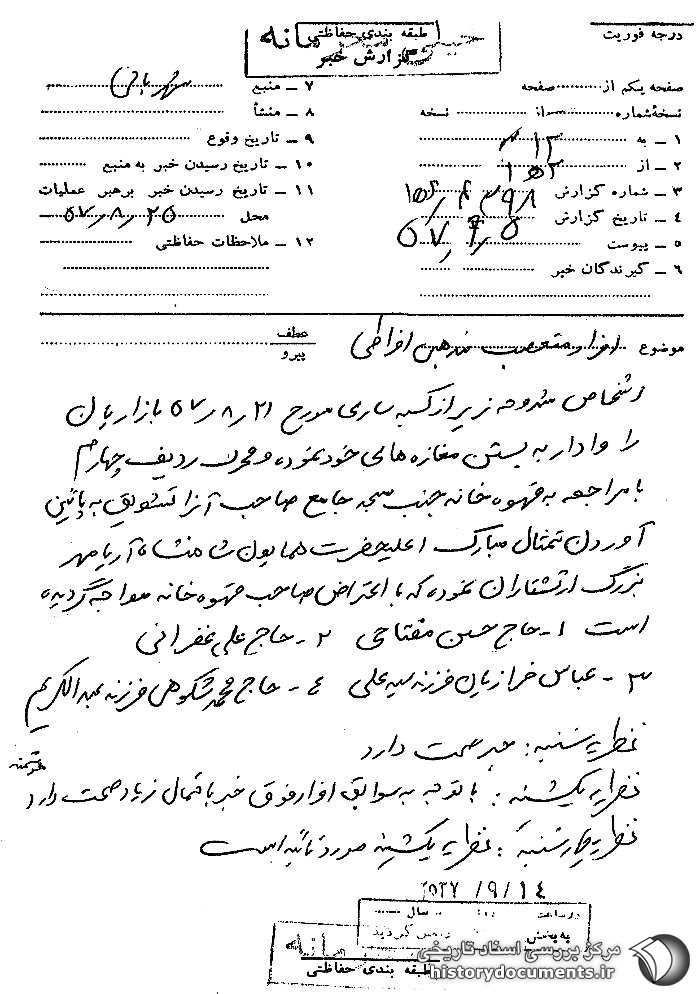 درجه فوریت
طبقه بندی حفاظتی
گزارش خبر
صفحه یکم از صفحه
نسخهٔ شماره از نسخه
۱ ـ به ۳۱۲
۲ ـ از ۱۵۲
۳ ـ شماره گزارش
۴ ـ تاریخ گزارش
۵ ـ پیوست
۶ ـ گیرندگان خبر
۷ ـ منبع
۸ ـ منشأ
۹ ـ تاریخ وقوع
۱۰ ـ تاریخ رسیدن خبر به منبع
۱۱ ـ تاریخ رسیدن خبر برهبر عملیات
محل ۵۷٫۸٫۲۵
۱۲ ـ ملاحظات حفاظتی
موضوع افراد متعصب مذهبی افراطی
عطف
پیرو
اشخاص مشروحه زیر از کسبه ساری مورخ ۲۱٫۸٫۵۷ بازاریان
را وادار به بستن مغازه های خود نموده و محرک ردیف چهارم
با مراجعه به قهوه خانه جنب مسجد جامع صاحب آنرا تشویق به پائین
آوردن تمثال مبارک اعلیحضرت همایون شاهنشاه آریامهر
بزرگ ارتشتاران نموده که با اعتراض صاحب قهوه خانه مواجه گردیده
است ۱ـ حاج حسین مفتاحی ۲ـ حاج علی غفرانی
۳ـ عباس خرازیان فرزند سید علی ٤ـ حاج محمد شکوهی فرزند عبدالکریم
نظریه شنبه: خبر صحت دارد
نظریه یکشنبه: با توجه به سوابق افراد فوق خبر باحتمال زیاد صحت دارد
نظریه چهارشنبه: نظریه یکشنبه مورد تائید است
۲۵۳۷/۹/۱٤
در ساعت سال
به بخش
طبقه بندی حفاظتی
مرکز بررسی اسناد تاریخی
historydocuments.ir